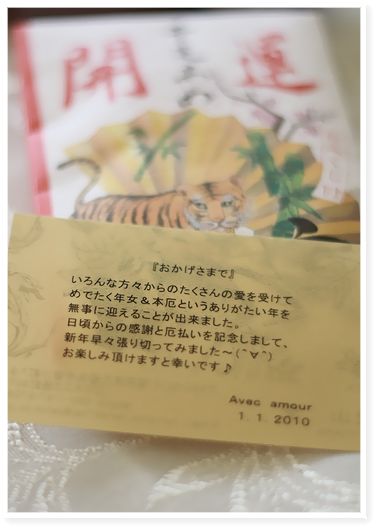 開運
『おかげさまで』
いろんな方々からのたくさんの愛を受けて
めでたく年女&本厄というありがたい年を
無事に迎えることが出来ました。
日頃からの感謝と厄払いを記念しまして、
新年早々張り切ってみました～(^∀^)
お楽しみ頂けますと幸いです♪
Avec amour
1. 1. 2010